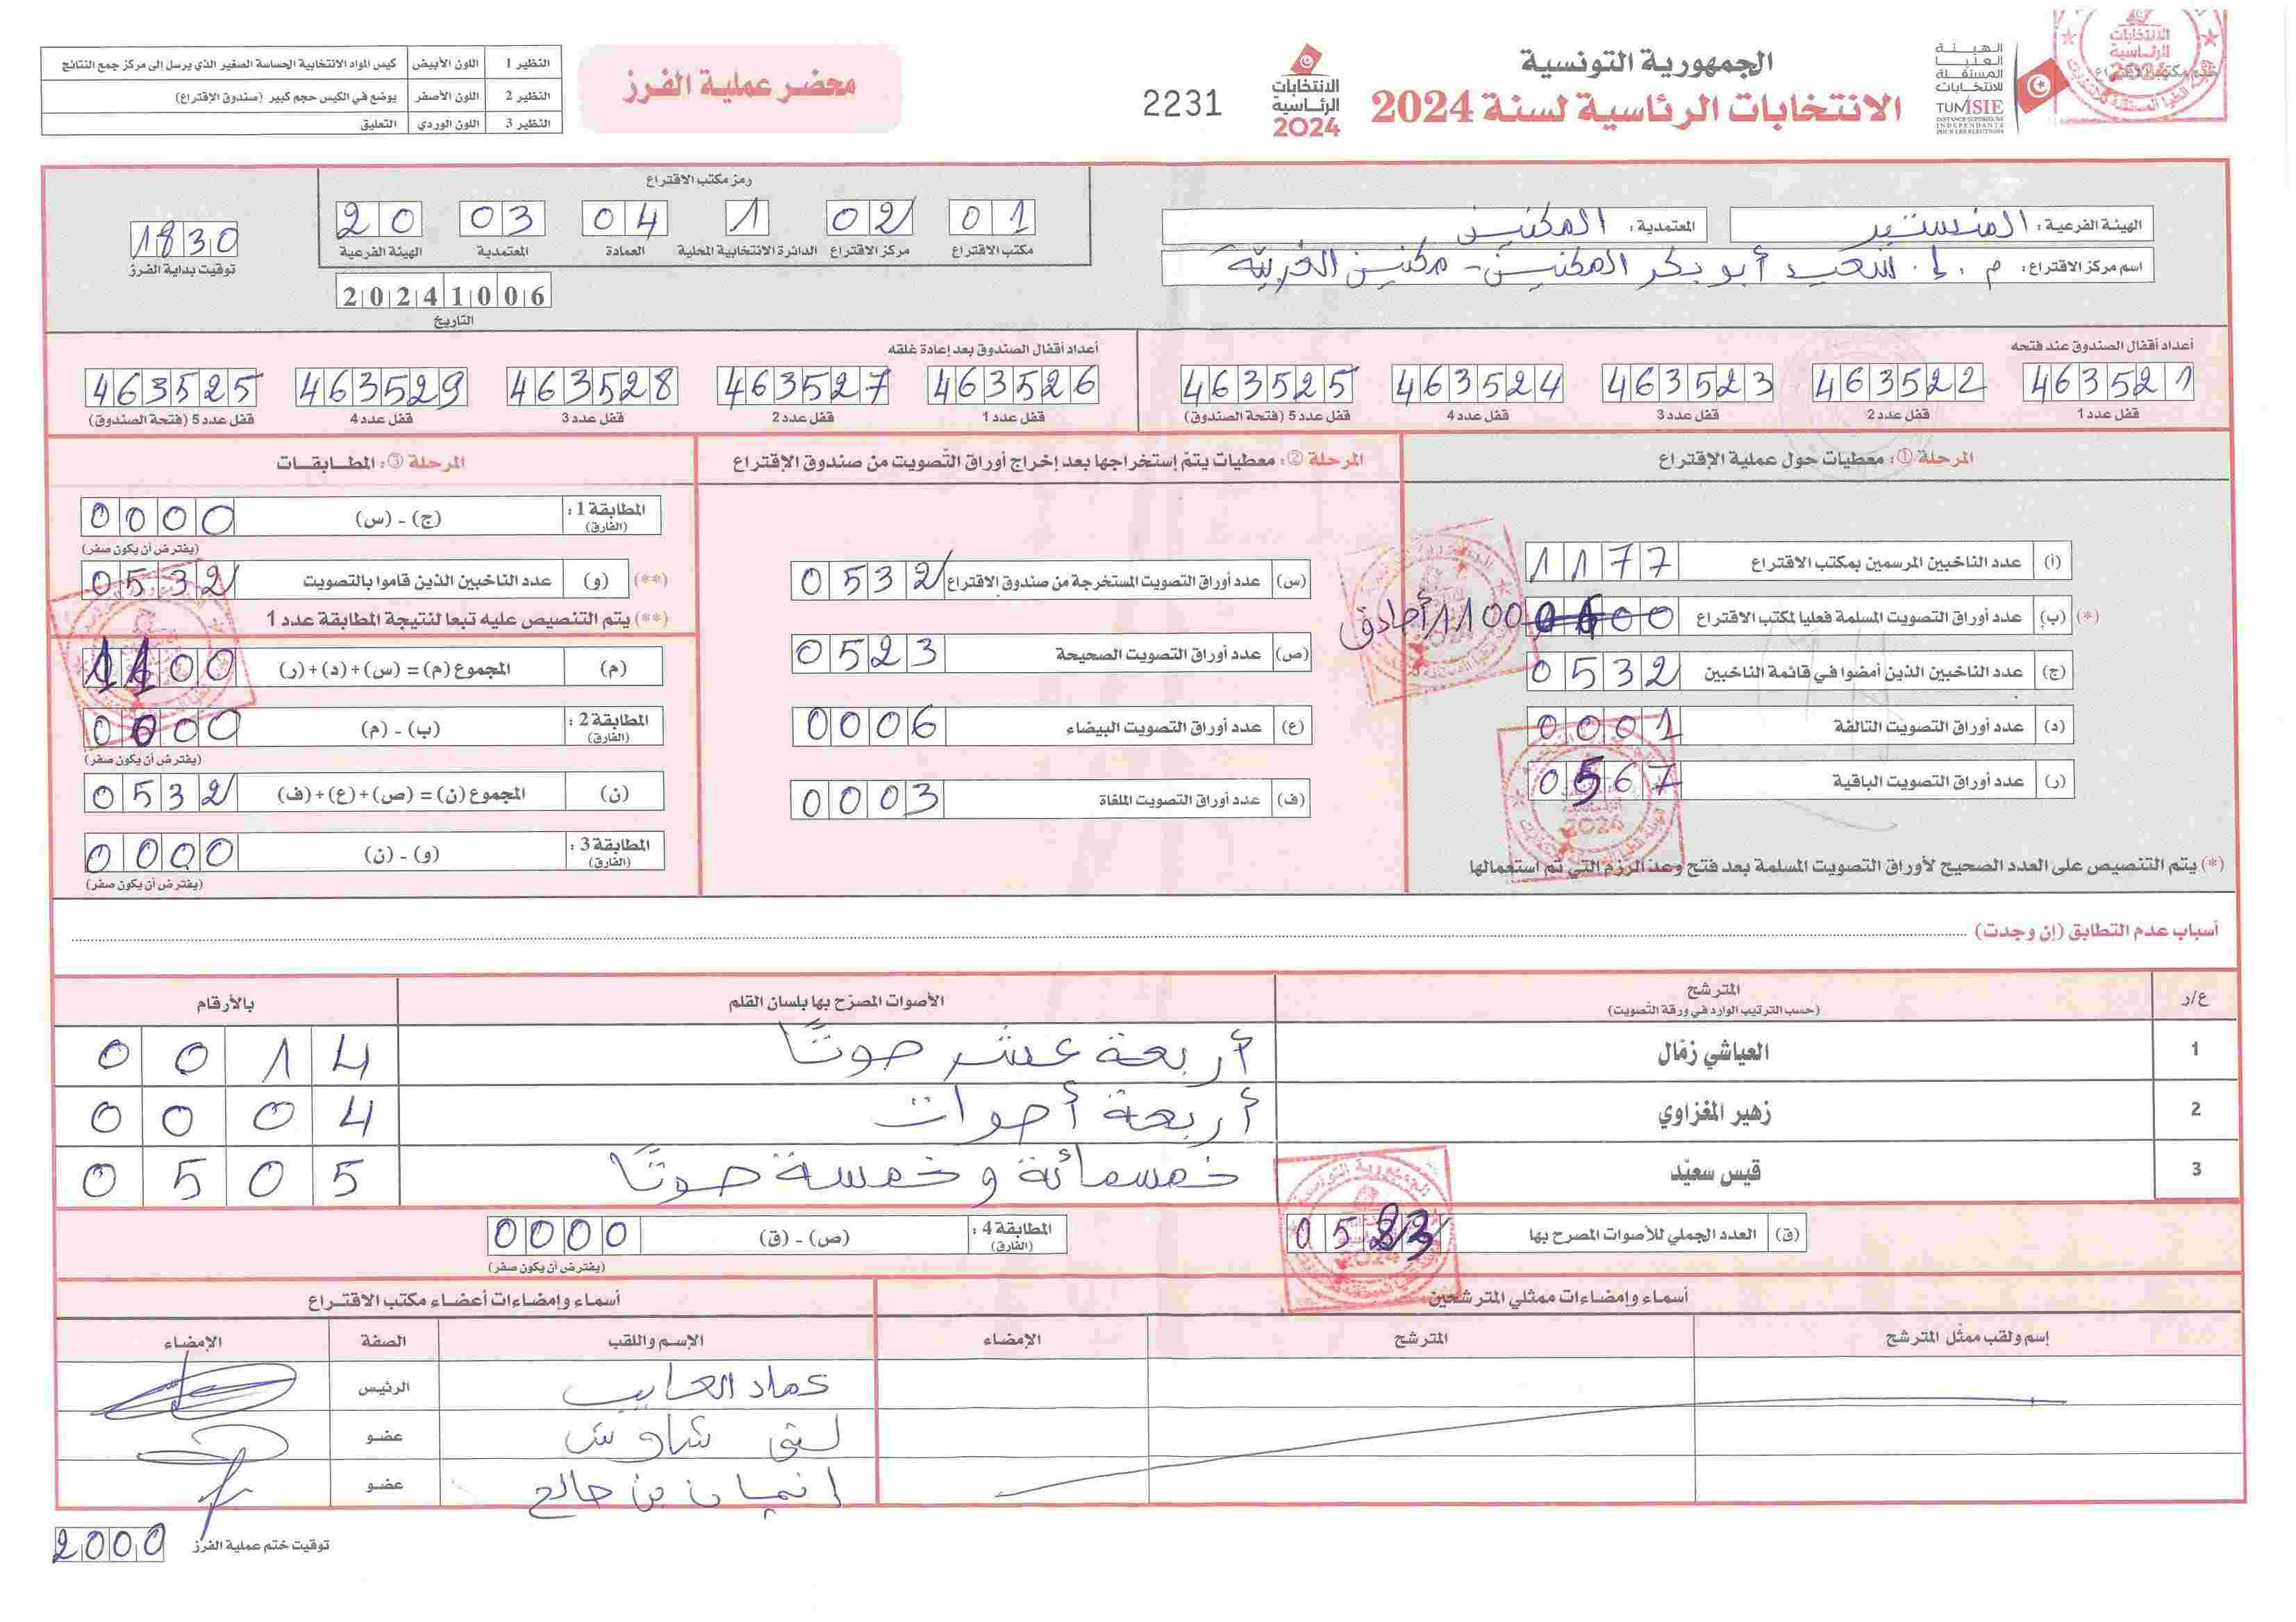 الجمهورية التونسية
الانتخابات الرئاسية لسنة 2024
الهيئة العليا المستقلة للانتخابات
TUNISIE
INSTANCE SUPERIEURE INDEPENDANTE POUR LES ELECTIONS
الانتخابات الرئاسية 2024
2231
محضر عملية الفرز
النظير 1 اللون الأبيض كيس المواد الانتخابية الحساسة الصغير الذي يرسل إلى مركز جمع النتائج
النظير 2 اللون الأصفر يوضع في الكيس حجم كبير (صندوق الإقتراع)
النظير 3 اللون الوردي التعليق
الهيئة الفرعية: المنستير
المعتمدية: المكنين
اسم مركز الاقتراع: م. إ. سعيد أبو بكر المكنين - مكنين الغربية
رمز مكتب الاقتراع
01 مكتب الاقتراع
02 مركز الاقتراع
1 الدائرة الانتخابية المحلية
04 العمادة
03 المعتمدية
20 الهيئة الفرعية
20241006
التاريخ
1830
توقيت بداية الفرز
أعداد أقفال الصندوق عند فتحه
463521 قفل عدد 1
463522 قفل عدد 2
463523 قفل عدد 3
463524 قفل عدد 4
463525 قفل عدد 5 (فتحة الصندوق)
أعداد أقفال الصندوق بعد إعادة غلقه
463526 قفل عدد 1
463527 قفل عدد 2
463528 قفل عدد 3
463529 قفل عدد 4
463525 قفل عدد 5 (فتحة الصندوق)
المرحلة ①: معطيات حول عملية الإقتراع
(أ) عدد الناخبين المرسمين بمكتب الاقتراع 1177
(*) (ب) عدد أوراق التصويت المسلمة فعليا لمكتب الاقتراع 1100 أصادق
(ج) عدد الناخبين الذين أمضوا في قائمة الناخبين 0532
(د) عدد أوراق التصويت التالفة 0001
(ر) عدد أوراق التصويت الباقية 0567
(*) يتم التنصيص على العدد الصحيح لأوراق التصويت المسلمة بعد فتح وعد الرزم التي تم استعمالها
المرحلة ②: معطيات يتمّ إستخراجها بعد إخراج أوراق التّصويت من صندوق الإقتراع
(س) عدد أوراق التصويت المستخرجة من صندوق الإقتراع 0532
(ص) عدد أوراق التصويت الصحيحة 0523
(ع) عدد أوراق التصويت البيضاء 0006
(ف) عدد أوراق التصويت الملغاة 0003
المرحلة ③: المطــابقــات
المطابقة 1: (الفارق) (ج) - (س) 0000
(يفترض أن يكون صفر)
(**) (و) عدد الناخبين الذين قاموا بالتصويت 0532
(**) يتم التنصيص عليه تبعا لنتيجة المطابقة عدد 1
(م) المجموع (م) = (س) + (د) + (ر) 1100
المطابقة 2: (الفارق) (ب) - (م) 0000
(يفترض أن يكون صفر)
(ن) المجموع (ن) = (ص) + (ع) + (ف) 0532
المطابقة 3: (الفارق) (و) - (ن) 0000
(يفترض أن يكون صفر)
أسباب عدم التطابق (إن وجدت)
ع/ر المترشح (حسب الترتيب الوارد في ورقة التّصويت) الأصوات المصرّح بها بلسان القلم بالأرقام
1 العياشي زمّال أربعة عشر صوتًا 0014
2 زهير المغزاوي أربعة أصوات 0004
3 قيس سعيّد خمسمائة وخمسة صوتًا 0505
(ق) العدد الجملي للأصوات المصرح بها 0523
المطابقة 4: (الفارق) (ص) - (ق) 0000
(يفترض أن يكون صفر)
أسماء وإمضاءات ممثلي المترشحين
إسم ولقب ممثّل المترشح المترشح الإمضاء
أسماء وإمضاءات أعضاء مكتب الاقتراع
الإسم واللقب الصفة الإمضاء
عماد العايب الرئيس
لبنى شاوش عضو
إيمان بن صالح عضو
توقيت ختم عملية الفرز 2000